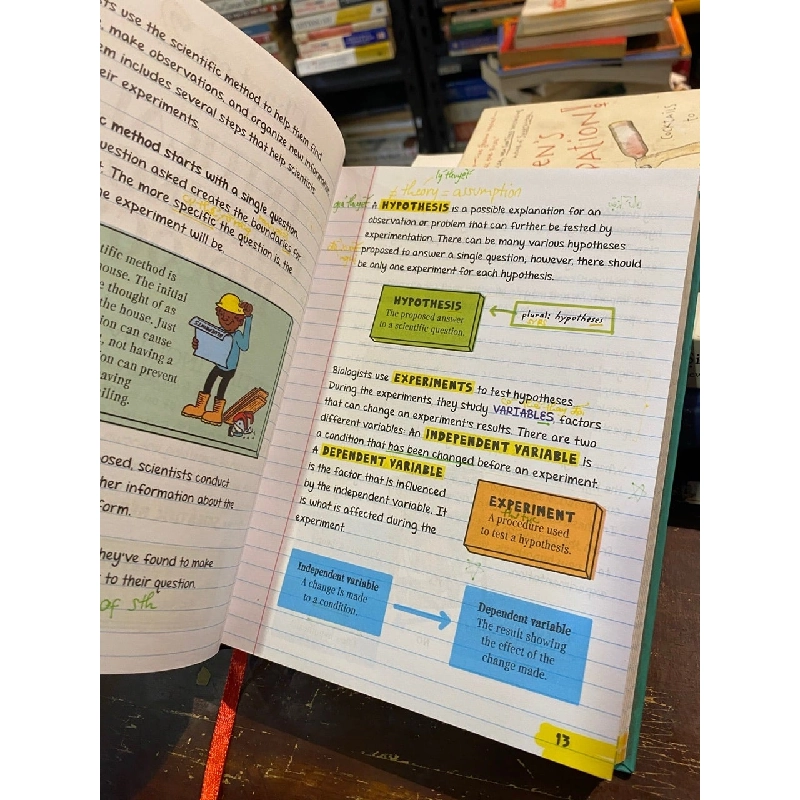 use the scientific method to help them find
make observations, and organize new information
includes several steps that help scientists
experiments.
method starts with a single question.
question asked creates the boundaries for
The more specific the question is, the
experiment will be.
method is
house. The initial
thought of as
the house. Just
can cause
not having a
can prevent
scientists conduct
information about the
form.
they've found to make
to their question.
of sth
lý thuyết
≠ theory = assumption
A HYPOTHESIS is a possible explanation for an
observation or problem that can further be tested by
experimentation. There can be many various hypotheses
proposed to answer a single question, however, there should
be only one experiment for each hypothesis.
HYPOTHESIS
The proposed answer
in a scientific question.
plural: hypotheses
Biologists use EXPERIMENTS to test hypotheses.
During the experiments, they study VARIABLES, factors
that can change an experiment's results. There are two
different variables: An INDEPENDENT VARIABLE is
a condition that has been changed before an experiment.
A DEPENDENT VARIABLE
is the factor that is influenced
by the independent variable. It
is what is affected during the
experiment.
EXPERIMENT
A procedure used
to test a hypothesis.
Independent variable
A change is made
to a condition.
Dependent variable
The result showing
the effect of the
change made.
13